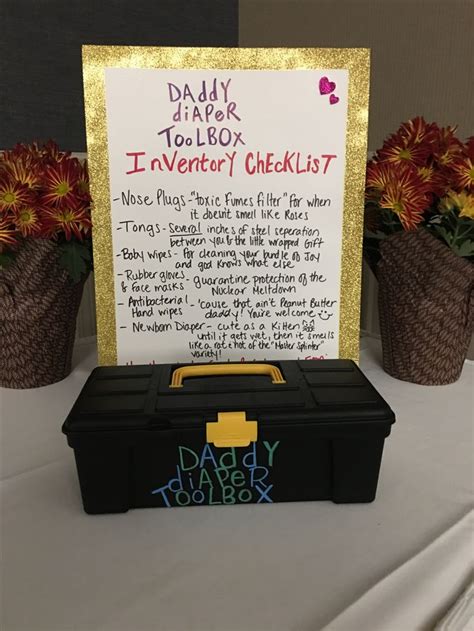 DADDY
diAPeR
TooLBOX
InVentory CheCkLisT
- Nose Plugs - "toxic Fumes filter" for when
it doesn't smell like Roses
- Tongs - Several inches of steel seperation
between you & the little wrapped Gift
- Baby wipes - For cleaning your bundle of Joy
and god knows what else
- Rubber gloves - guarantee protection of the
& Face masks Nuclear Meltdown
- Antibacterial - 'cause that ain't Peanut Butter
Hand wipes daddy! You're welcome
- Newborn Diaper - cute as a Kitten
Until it gets wet, then it smells
like a rat & not of the "Master Splinter"
Variety!
DADDY
diAPeR
TooLBOX